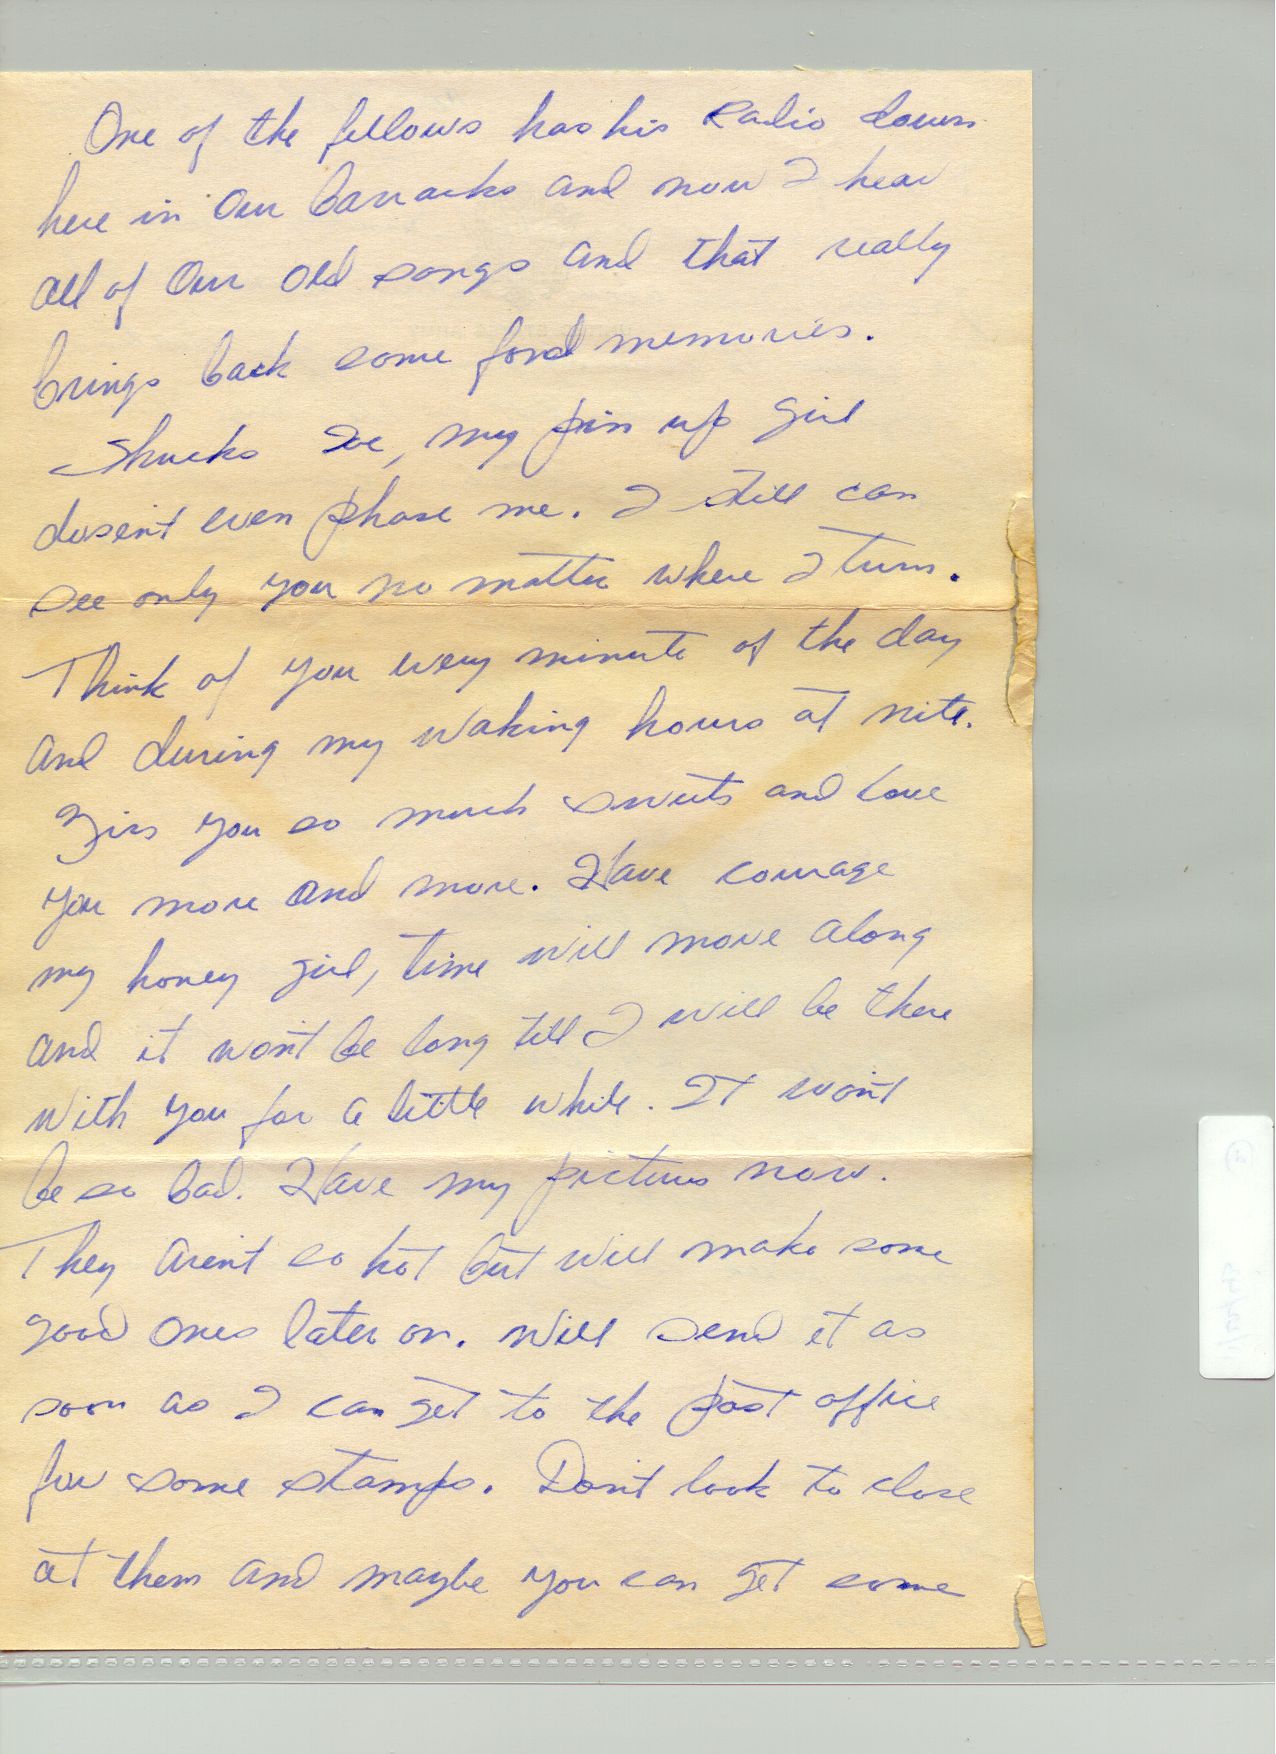 One of the fellows has his Radio down
here in our barracks and now I hear
all of our old songs and that really
brings back some fond memories.
Shucks my pin up girl
dosen't even phase me. I still can
see only you no matter where I turn.
Think of you every minute of the day
and during my waking hours at nite.
you so much sweets and love
you more and more. Have courage
my honey girl, time will move along
and it won't be long till I will be there
with you for a little while. It won't
be so bad. Have my pictures now.
They aren't so hot but will make some
good ones later on. Will send it as
soon as I can get to the post office
for some stamps. Don't look to close
at them and maybe you can get some